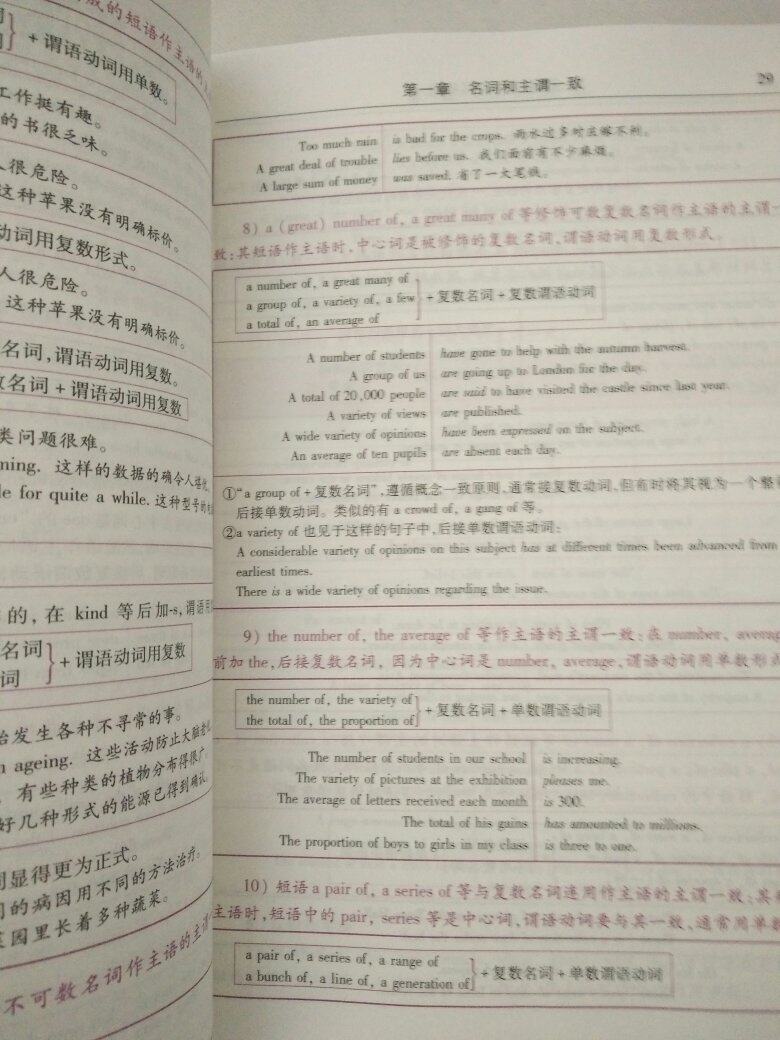 成的短语作主语的
词
词 } + 谓语动词用单数。
工作挺有趣。
的书很乏味。
人很危险。
这种苹果没有明确标价。
动词用复数形式。
人很危险。
这种苹果没有明确标价。
名词,谓语动词用复数。
数名词 + 谓语动词用复数
类问题很难。
ning. 这样的数据的确令人堪忧
le for quite a while. 这种型号的
的, 在 kind 等后加-s, 谓语用
名词
词 } + 谓语动词用复数
始发生各种不寻常的事。
n ageing. 这些活动防止大脑老化
有些种类的植物分布得很广
好几种形式的能源已得到确认。
词显得更为正式。
同的病因用不同的方法治疗。
菜园里长着多种蔬菜。
不可数名词作主语的主谓
第一章 名词和主谓一致 29
Too much rain is bad for the crops. 雨水过多对庄稼不利。
A great deal of trouble lies before us. 我们面前有不少麻烦。
A large sum of money was saved. 省了一大笔钱。
8) a (great) number of, a great many of 等修饰可数复数名词作主语的主谓一
致:其短语作主语时,中心词是被修饰的复数名词,谓语动词用复数形式。
a number of, a great many of
a group of, a variety of, a few } + 复数名词 + 复数谓语动词
a total of, an average of
A number of students have gone to help with the autumn harvest.
A group of us are going up to London for the day.
A total of 20,000 people are said to have visited the castle since last year.
A variety of views are published.
A wide variety of opinions have been expressed on the subject.
An average of ten pupils are absent each day.
①“a group of + 复数名词”,遵循概念一致原则,通常接复数动词,但有时将其视为一个整
后接单数动词。类似的有 a crowd of, a gang of 等。
②a variety of 也见于这样的句子中,后接单数谓语动词:
A considerable variety of opinions on this subject has at different times been advanced from
earliest times.
There is a wide variety of opinions regarding the issue.
9) the number of, the average of 等作主语的主谓一致:在 number, averag
前加 the,后接复数名词, 因为中心词是 number, average,谓语动词用单数形式
the number of, the variety of
the total of, the proportion of } + 复数名词 + 单数谓语动词
The number of students in our school is increasing.
The variety of pictures at the exhibition pleases me.
The average of letters received each month is 300.
The total of his gains has amounted to millions.
The proportion of boys to girls in my class is three to one.
10) 短语 a pair of, a series of 等与复数名词连用作主语的主谓一致:其
主语时,短语中的 pair, series 等是中心词,谓语动词要与其一致,通常用单数
a pair of, a series of, a range of
a bunch of, a line of, a generation of } + 复数名词 + 单数谓语动词